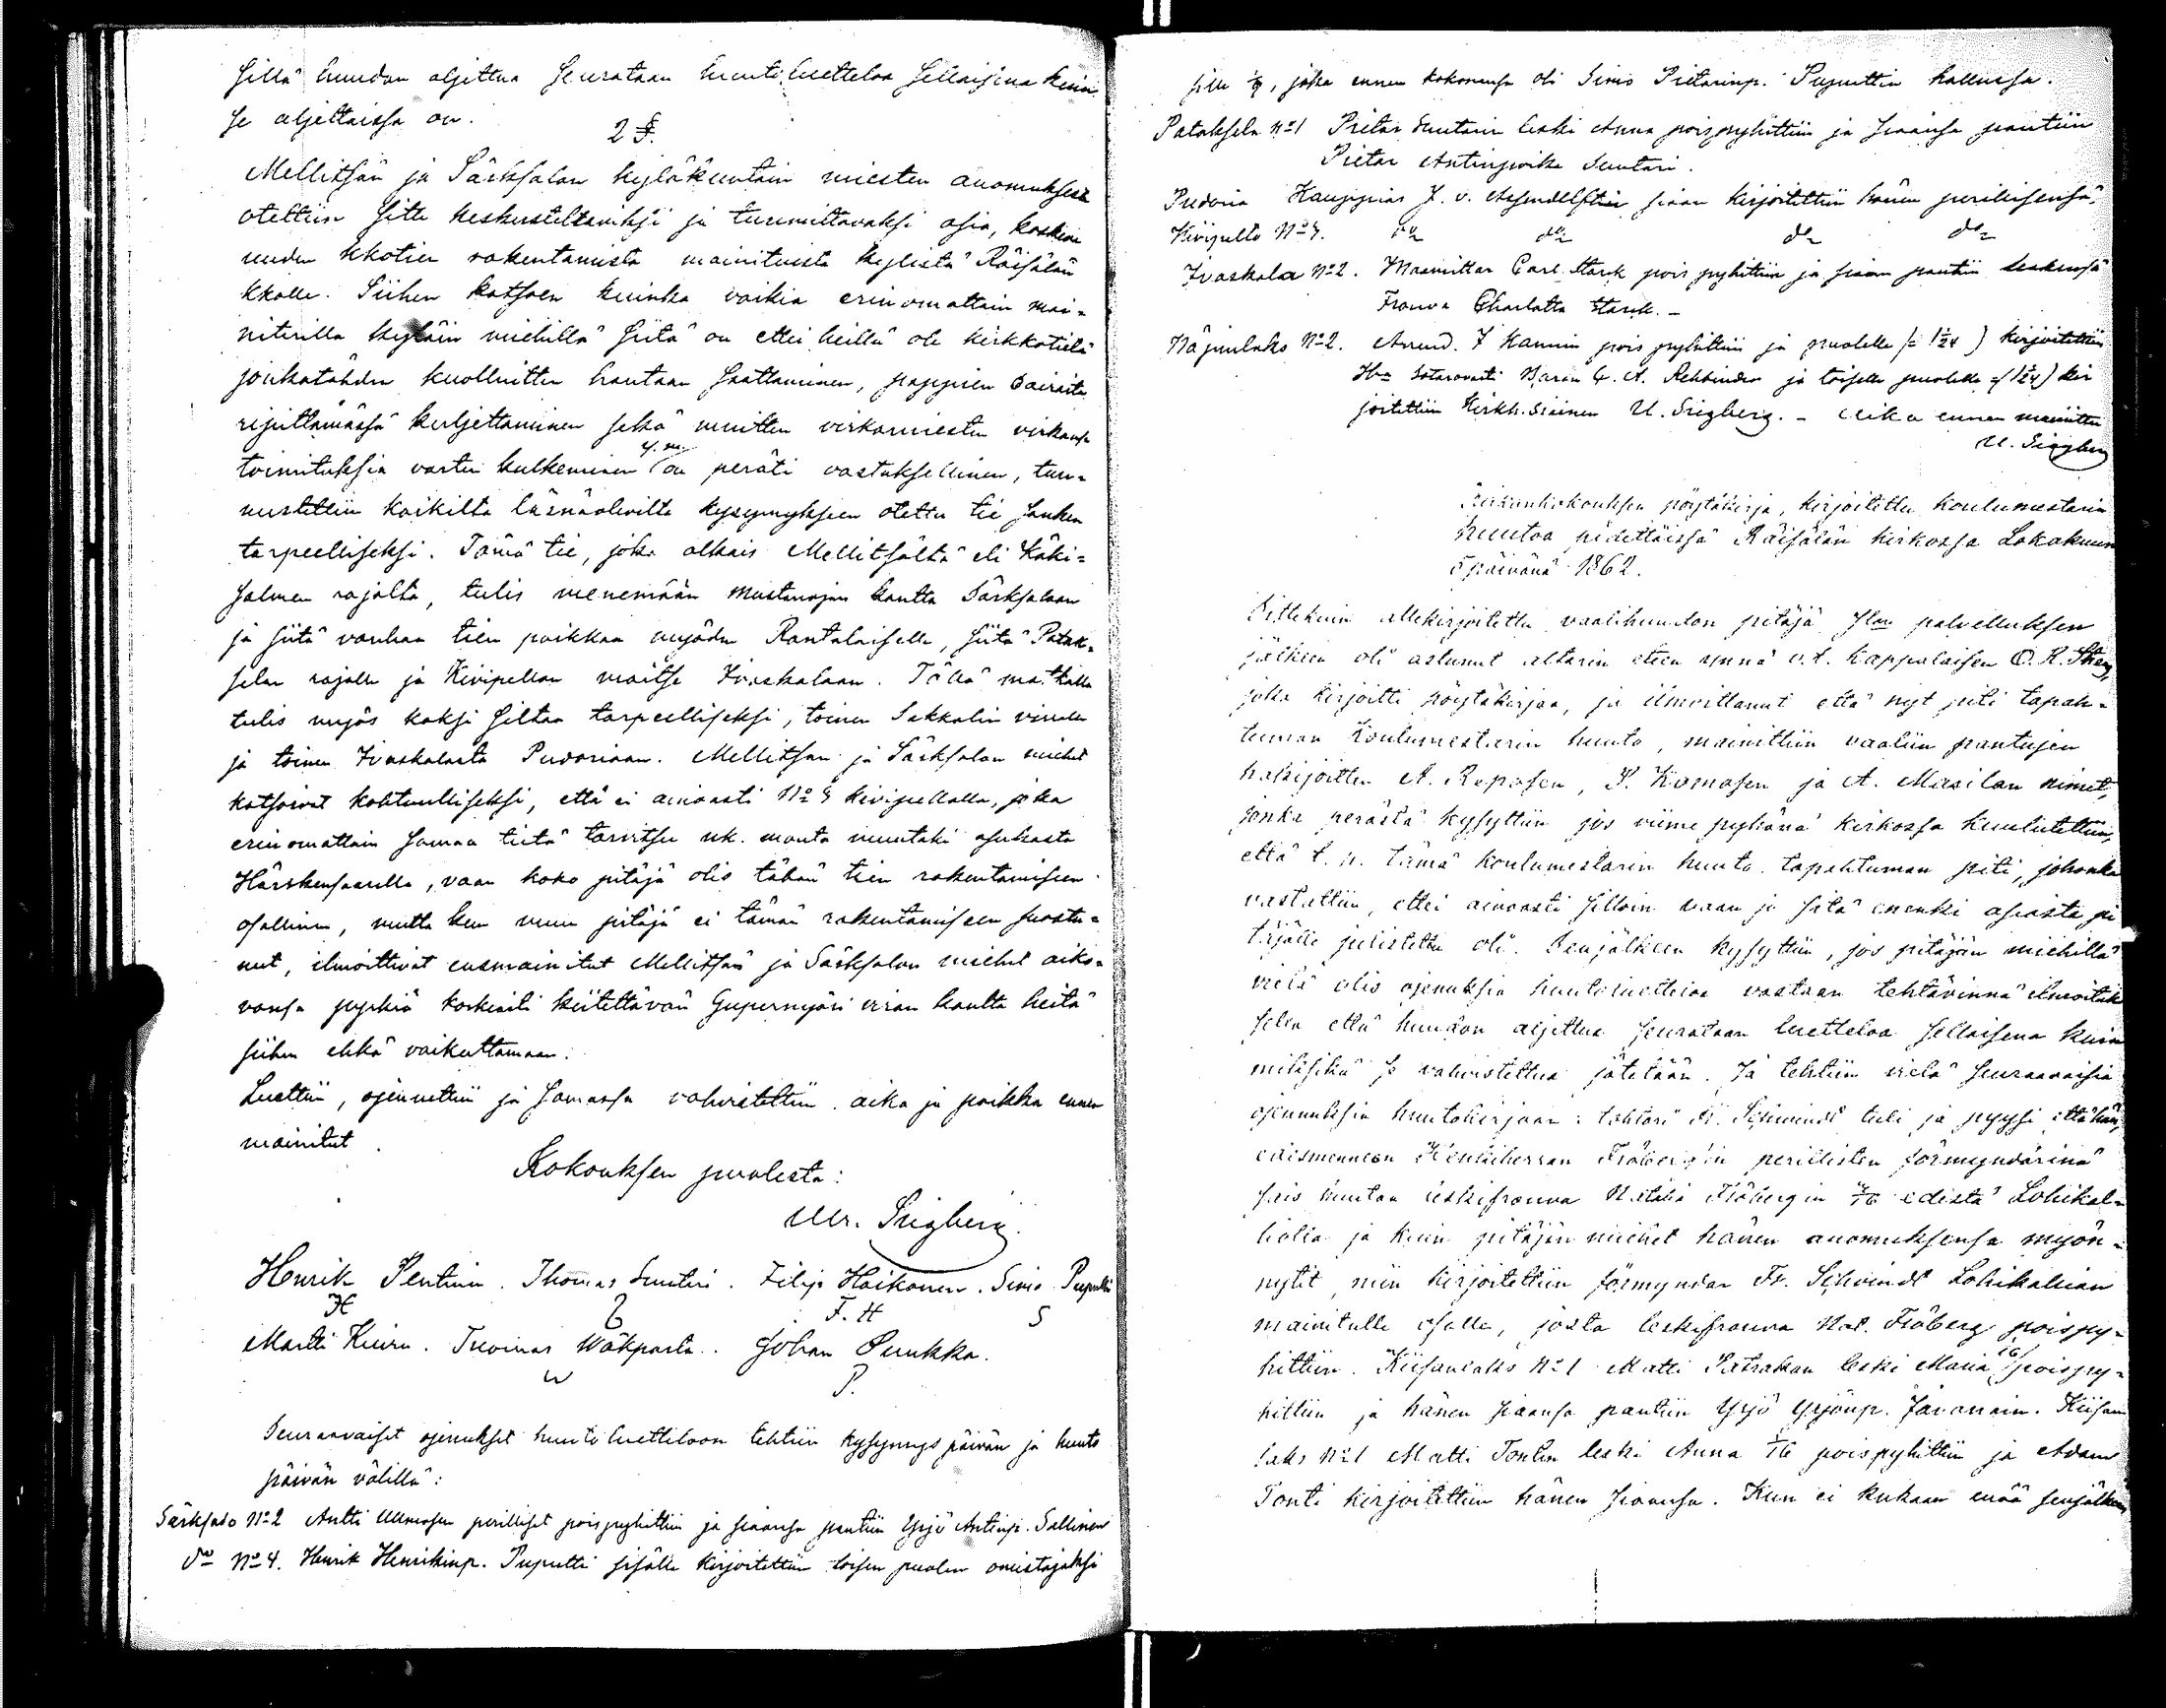 sillä huudon aljettua seurataan huutoluetteloa sellaisena kuin
se aljettaissa on.
2 §.
Mellitsän ja Särksalon kyläkuntain miesten anomuksesta
otettiin sitte keskusteltavaksi ja tuumittavaksi asia, koskeva
uuden kkotien rakentamista mainituista kylistä Räisälän
kkolle. Siihen katsoen kuinka vaikia erinomattain mai-
nituilla kyläin miehillä siitä on ettei heillä ole kirkkotietä
jonkatähden kuolluitten hautaan saattaminen, pappien sairaita
ripittämässä kuljettaminen sekä muitten virkamiesten virkansa
toimituksia varten kulkeminen y. m. on peräti vastuksellinen, tun-
nustettiin kaikilta läsnäolevilta kysymykseen otettu tie sangen
tarpeelliseksi. Tämä tie, joka alkais Mellitsältä eli Käki-
salmen rajalta, tulis menemään Mustanojan kautta Särksaloon
ja siitä vanhan tien paikkaa myöden Rantalaiselle, siitä Patak-
selan rajalle ja Kivipellon maitse Ivaskalaan. Tällä matkalla
tulis myös kaksi siltaa tarpeelliseksi, toinen Sakkalin virralle
ja toinen Ivaskalasta Pudoriaan. Mellitsän ja Särksalon miehet
katsoivat kohtuulliseksi, että ei ainoasti No 4 Kivipellolla, joka
erinomattain samaa tietä tarvitsee nk. monta muutaki asukasta
Härskensaarella, vaan koko pitäjä olis tähän tien rakentamiseen
osallinen, mutta kun muu pitäjä ei tämän rakentamiseen suostu-
nut, ilmoittivat ensmainitut Mellitsän ja Särksalon miehet aiko-
vansa pyrkiä korkiasti kiitettävän Gupernyöri viran kautta heitä
siihen ehkä vaikuttamaan.
Luettiin, ojennettiin ja samassa vahvistettiin. aika ja paikka ennen
mainitut.
Kokouksen puolesta:
Ulr. Sirgberg.
Henrik Pentinen. Thomas Suutari. Filip Haikonen. Simo Puputti
H F. H S
Martti Kiuru. Tuomas Wäkparta. Johan Puukka.
W P.
Seuraavaiset ojennukset huuto luetteloon tehtiin kysymys päivän ja huuto
päivän välillä:
Särksalo No 2 Antti Ukkosen perilliset poispyhittiin ja siaansa pantiin Yrjö Antinp. Sallinen
do No 4. Henrik Henrikinp. Puputti sisälle kirjoitettiin toisen puolen omistajaksi
sille, joka ennen kokonansa oli Simo Pietarinp. Puputtin hallussa.
Pataksela No 1 Pietar Suutarin leski Anna poispyhittiin ja siaansa pantiin
Pietar Antinpoika Suutari.
Pudoria Kauppias J. v. Assendelftin siaan kirjoitettiin hänen perillisensä.
Kivipelto No 4. do do do do
Ivaskala No 2. Maamittar Carl Stark pois pyhittiin ja siaan pantiin leskensä
Frouva Charlotta Stark. –
Näpinlaks No 2. Arend. J Hannin pois pyhittiin ja puolelle (= 1/24) kirjoitettiin
Hra Sotarovasti Baron C. A. Rehbinder ja toiselle puolelle =(1/24) kir
joitettiin Kirkh. Siainen U. Sirgberg. – Aika ennen mainittu
U. Sirgberg
Kirkonkokouksen pöytäkirja, kirjoitettu koulumestarin
huutoa pidettäissä Räisälän kirkossa Lokakuun
5 päivänä 1862.
Sittekuin allekirjoitettu vaalihuudon pitäjä Jlan palvelluksen
jälkeen oli astunut altarin eteen ynnä v.t. Kappalaisen O. R.
joka kirjoitti pöytäkirjaa, ja ilmoittanut että nyt piti tapah-
tuman Koulumestarin huuto, mainittiin vaaliin pantujen
hakijoitten A. Reposen, P. Komosen ja A. Masilan nimet,
jonka perästä kysyttiin jos viime pyhänä kirkossa kuulutettiin,
että t. p. tämä koulumestarin huuto tapahtuman piti, johonka
vastattiin, ettei ainoasti silloin vaan jo sitä ennenki asiasta pi
täjälle julistettu oli. Senjälkeen kysyttiin, jos pitäjän miehillä
vielä olis ojennuksia huutoluetteloa vastaan tehtävinnä ilmoituk
sella että huudon aljettua seurataan luetteloa sellaisena kuin
miksikä se vahvistettua jätetään. Ja tehtiin vielä seuraavaisia
ojennuksia huutokirjaan: tohtori Fr. Schvindt tuli ja pyysi että hän,
edesmenneen Kenttiherran Fröbergin perillisten förmyndärinä
sais huutaa leskifrouva Natalia Fröbergin edestä Lohikal-
liolta ja kuin pitäjän miehet hänen anomuksensa myön-
nytit, niin kirjoitettiin förmyndar Fr. Schvindt Lohikallian
mainitulle osalle, josta leskifrouva Nat. Fröberg poispy-
hittiin. Kiisanlaks No 1 Matti Patrakan leski Maria 1/6 poispy-
hittiin ja hänen siaansa pantiin Yrjö Yrjönp. Javanain. Kiisan
laks No 1 Matti Tontin leski Anna 1/16 poispyhittiin ja Adam
Tonti kirjoitettiin hänen siaansa. Kun ei kukaan enää senjälkeen